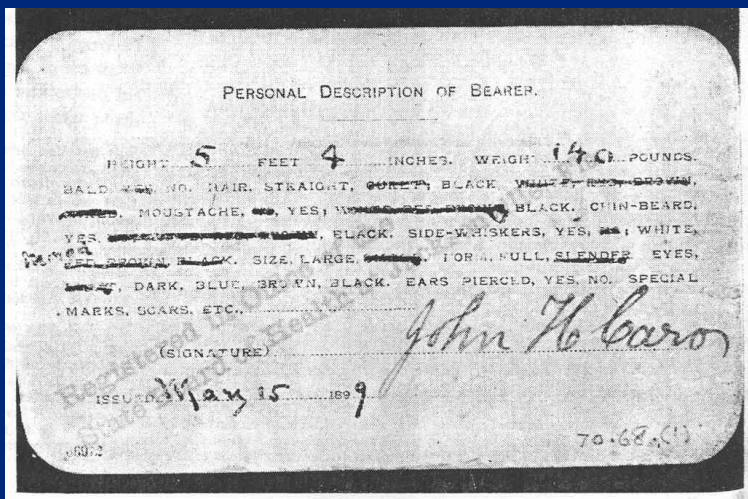 PERSONAL DESCRIPTION OF BEARER.
HEIGHT 5 FEET 4 INCHES. WEIGHT 140 POUNDS.
BALD YES, NO. HAIR, STRAIGHT, CURLY; BLACK WHITE, RED BROWN,
MOUSTACHE, NO, YES; WHITE RED BROWN, BLACK. CHIN-BEARD.
YES, BLACK. SIDE-WHISKERS, YES, NO; WHITE,
RED BROWN, BLACK. SIZE, LARGE, FORM, FULL, SLENDER EYES,
LIGHT, DARK. BLUE, BROWN, BLACK. EARS PIERCED, YES, NO. SPECIAL
MARKS, SCARS, ETC.,
(SIGNATURE) John H Caro
ISSUED May 15 1899
Registered in Office of the
State Board of Health at
70.68.(1)